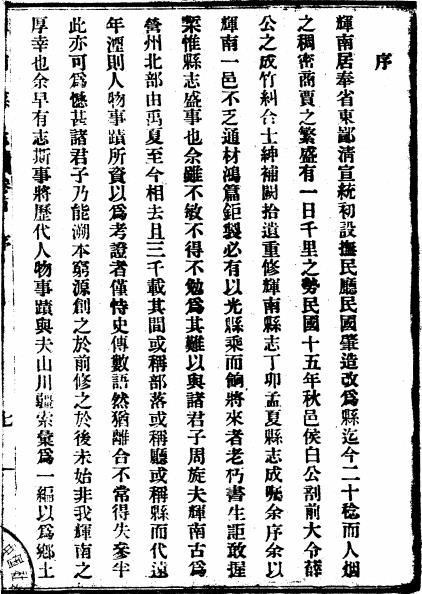 序
輝南居奉省東鄙清宣統初設撫民廳民國肇造改為縣迄今二十稔而人烟
之稠密商賈之繁盛有一日千里之勢民國十五年秋邑侯白公剖前大令薛
公之成竹糾合士紳補闕拾遺重修輝南縣志丁卯孟夏縣志成囑余序余以
輝南一邑不乏通材鴻篇鉅製必有以光縣乘而餉將來者老朽書生詎敢握
槧惟縣志盛事也余雖不敏不得不勉為其難以與諸君子周旋夫輝南古為
營州北部由禹夏至今相去且三千載其間或稱部落或稱廳或稱縣而代遠
年湮則人物事蹟所資以為考證者僅恃史傳數語然猶離合不常得失參半
此亦可為憾甚諸君子乃能溯本窮源創之於前修之於後未始非我輝南之
厚幸也余早有志斯事將歷代人物事蹟與夫山川疆索彙為一編以為鄉土
序
七